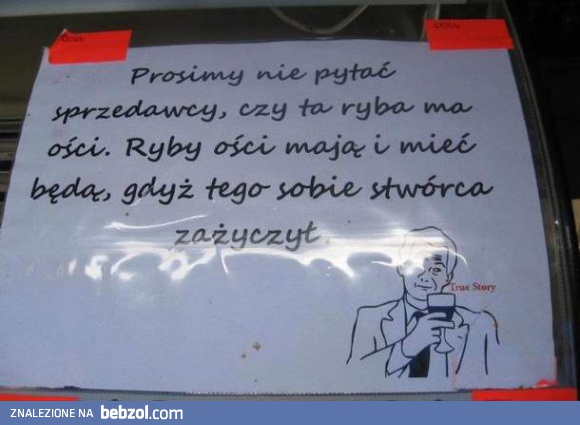 Prosimy nie pytać
sprzedawcy, czy ta ryba ma
ości. Ryby ości mają i mieć
będą, gdyż tego sobie stwórca
zażyczył.
True Story
ZNALEZIONE NA bebzol.com